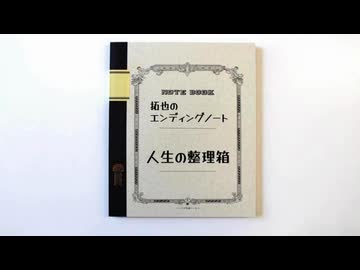 NOTE BOOK
拓也の
エンディングノート
人生の整理箱